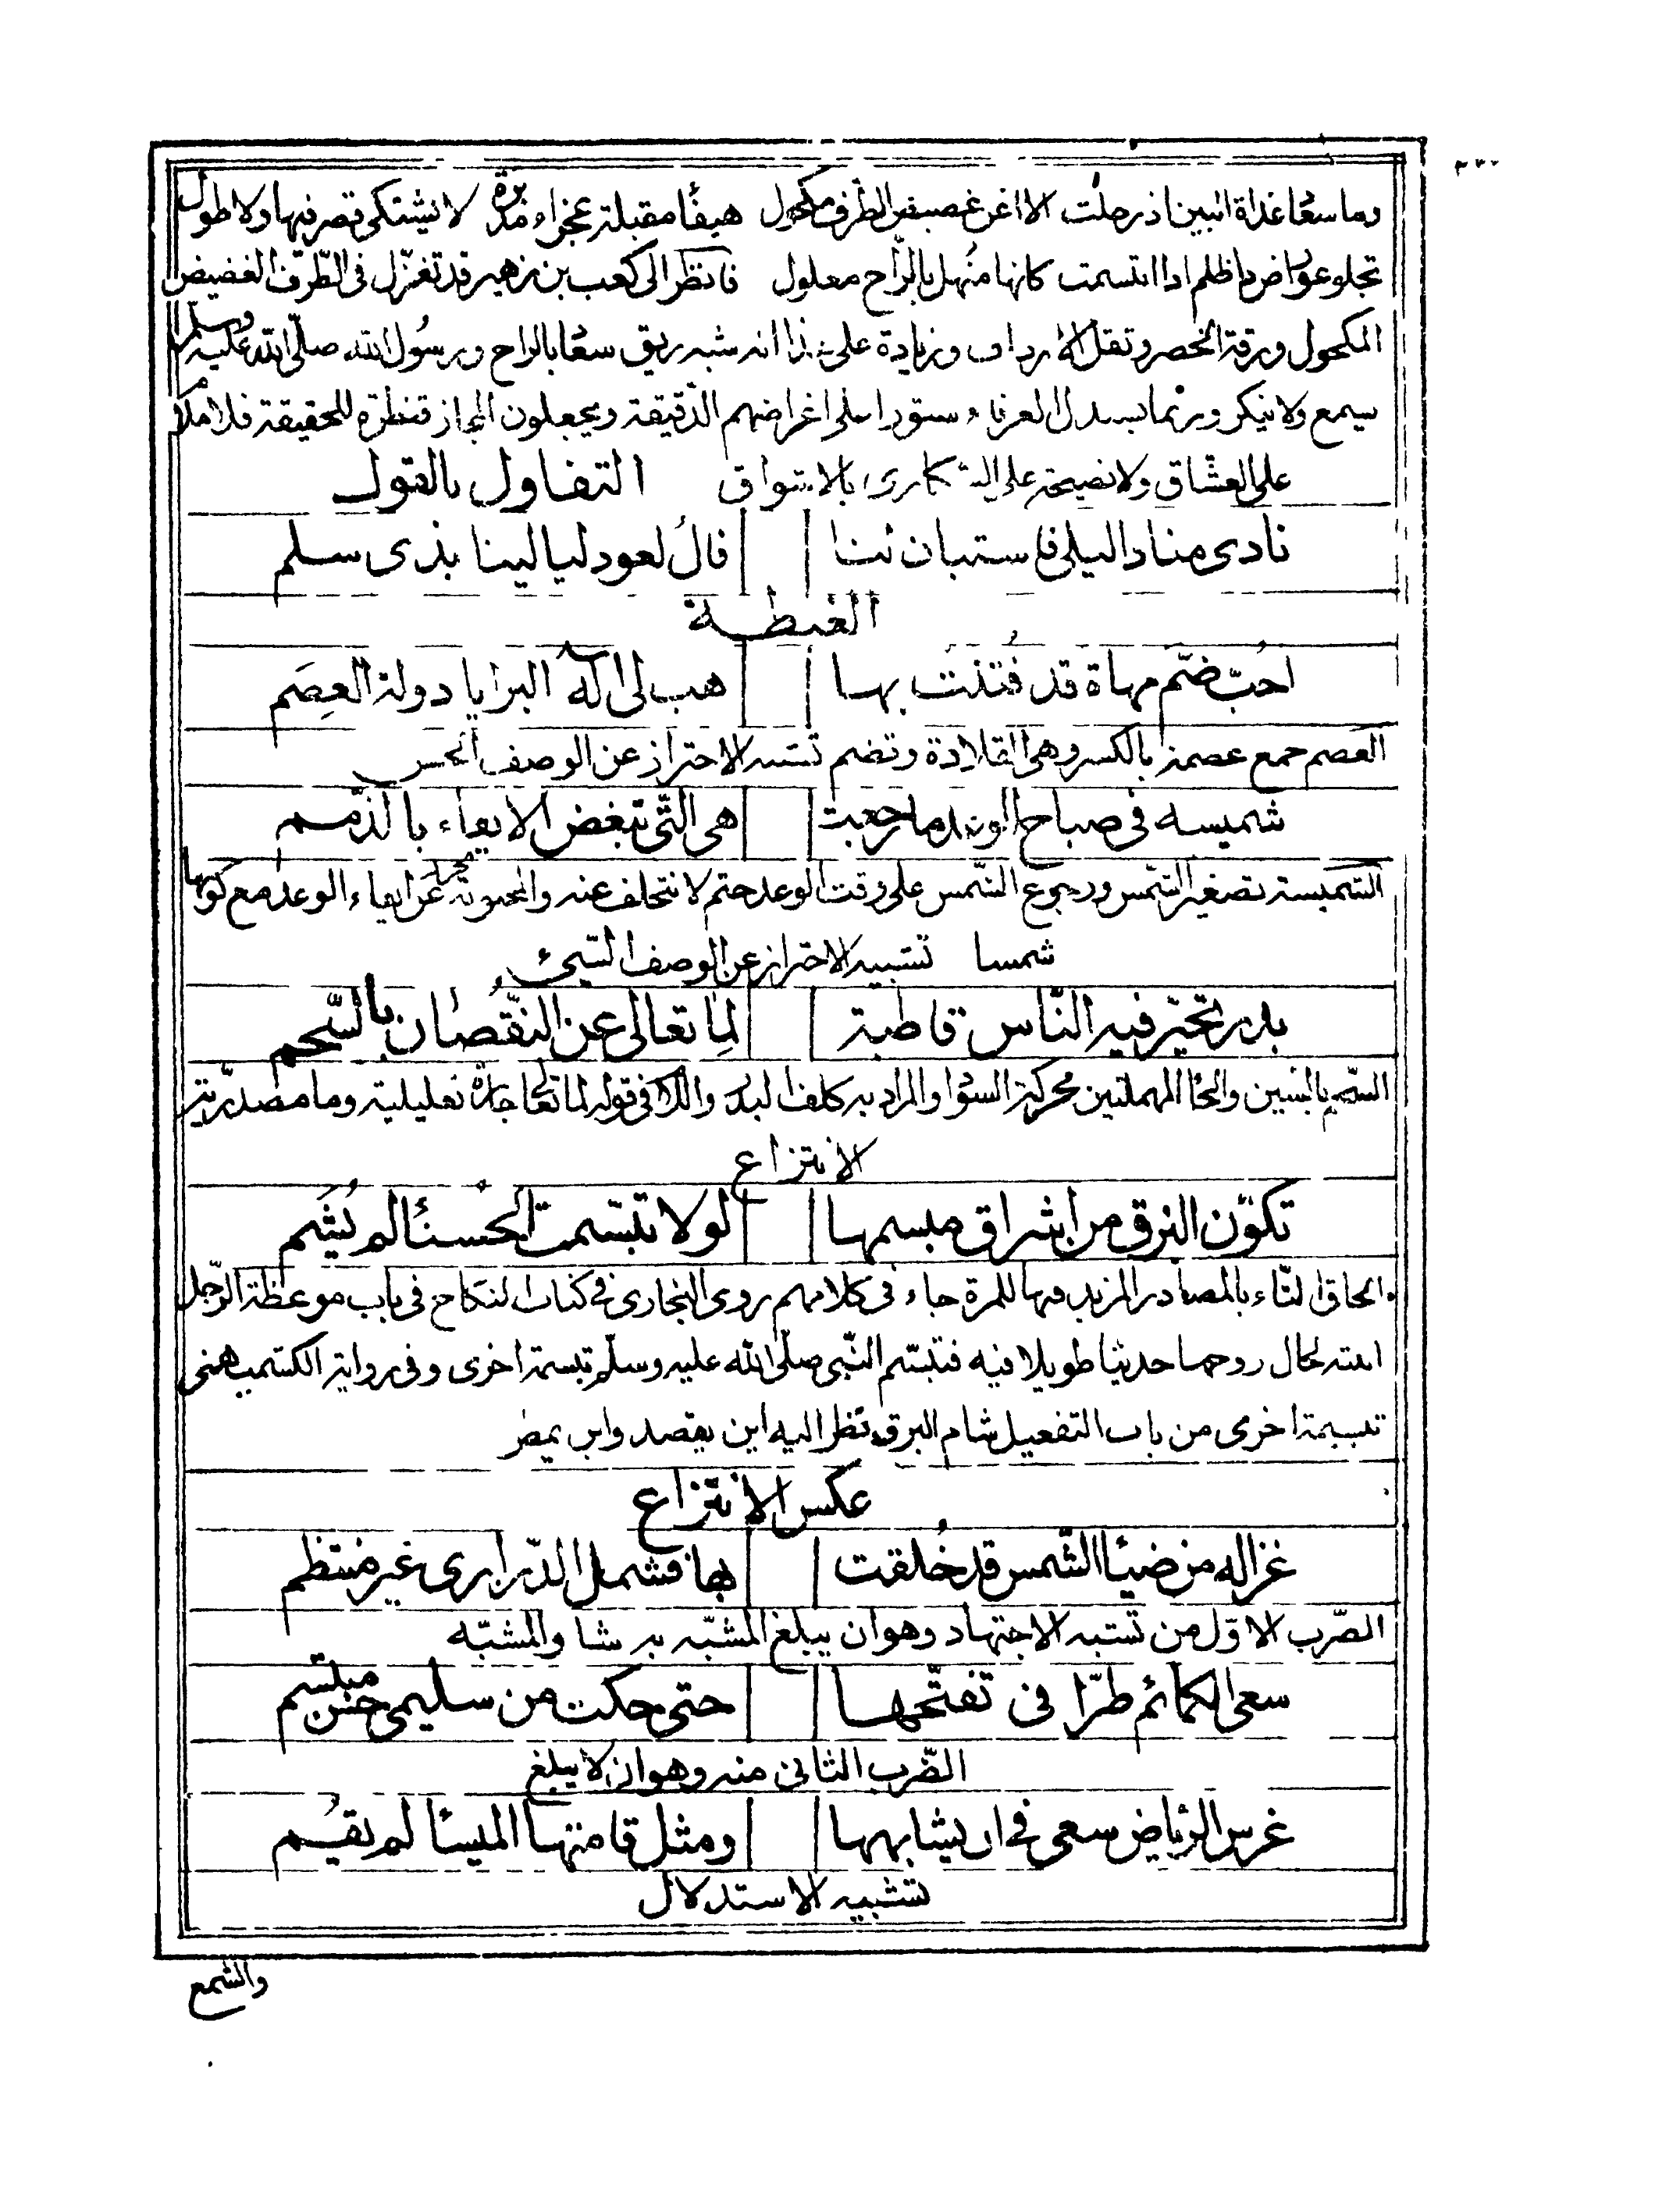 وما سعاد غداة البين اذ رحلت الا اغن غضيض الطرف مكحول هيفا مقبلة عجزاء مدبرة لا يشتكى قصر فيها ولا طول
تجلو عوارض ذا ظلم اذا ابتسمت كانها منهل بالراح معلول فانظر الى كعب بن زهير قد تغزل فى الطرف الغضيض
المكحول ورقة الخصر وثقل الارداف وزيادة على هذا انه شبه ريق سعاد بالراح ورسول الله صلى الله عليه وسلم
سيمع ولا ينكر وربما يسدل العرفاء ستورا على اغراضهم الدقيقة ويجعلون المجاز قنطرة للحقيقة فلا ملام
على العشاق ولا نصيحة على السكارى بالاشواق التفاول بالقول
نادى مناد اليلى فاستبان لنا فال لعود ليالينا بذى سلم
الغبطة
احب ضم مهاة قد فتنت بها هب لى اله البرايا دولة العصم
العصم جمع عصمة بالكسر وهى القلادة وتضم تشبيه الاحتراز عن الوصف الحسن
شميسه فى صباح الوعد ما رجعت هى التى تبغض الايفاء بالذمم
الشميسة تصغير الشمس ورجوع الشمس على وقت الوعد حتم لا تتخلف عنه والمحبوبة تحترز عن ايفاء الوعد مع كونها
شمسا تشبيه الاحتراز عن الوصف السيئ
بدر تحير فيه الناس قاطبة لما تعالى عن النقصان بالسحم
السحم بالسين والحا المهملتين محركة السواد والمراد به كلف البدر واللام فى قوله لما تعالى جارة تعليلية وما مصدرية
الانتزاع
تكون البرق من اشراق مبسمها لو لا تبسمت الحسنا لم يشم
الحاق التاء بالمصادر المزيد فيها للمرة جاء فى كلامهم روى البخارى فى كتاب النكاح فى باب موعظة الرجل
ابنته لحال زوجها حديثا طويلا فيه فتبسم النبى صلى الله عليه وسلم تبسمة اخرى وفى رواية الكشميهنى
تبسيمة اخرى من باب التفعيل شام البرق نظر اليه اين يقصد واين يمطر
عكس الانتزاع
غزاله من ضيا الشمس قد خلقت بها فشمل الدرارى غير منتظم
الضرب الاول من تشبيه الاجتهاد وهو ان يبلغ المشبه به شا والمشبه
سعى الكمائم طرا فى تفتحها حتى حكت من سليمى حسن مبتسم
الضرب الثانى منه وهو ان لا يبلغ
غرس الرياض سعى فى ان يشابهها ومثل قامتها الميسا لم يقم
تشبيه الاستدلال
والشمع